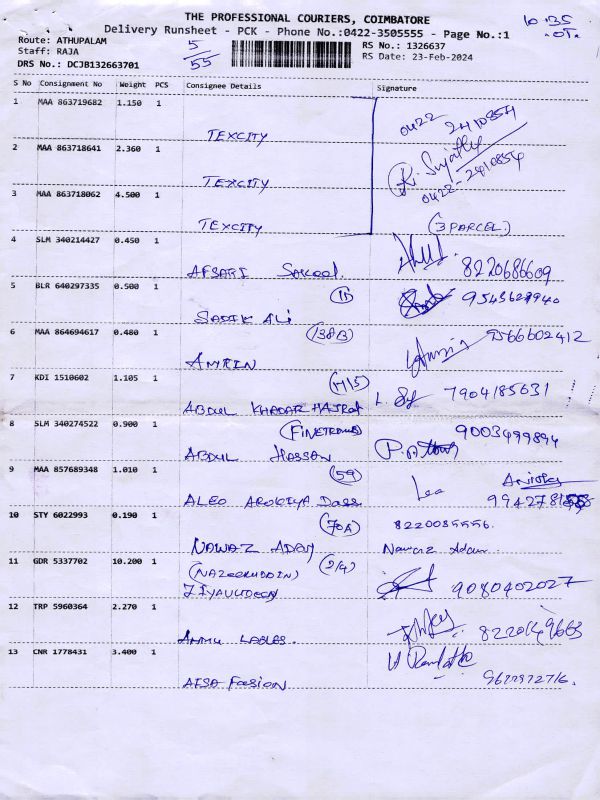 THE PROFESSIONAL COURIERS, COIMBATORE
10:35
Delivery Runsheet - PCK - Phone No.:0422-3505555 - Page No.:1
Route: ATHUPALAM
5/55
RS No.: 1326637
Staff: RAJA
RS Date: 23-Feb-2024
DRS No.: DCJB132663701
S No Consignment No Weight PCS Consignee Details Signature
1 MAA 863719682 1.150 1
TEXCITY
0422 2410854
2 MAA 863718641 2.360 1
TEXCITY
0422-2410854
3 MAA 863718062 4.500 1
TEXCITY
(3 PARCEL)
4 SLM 340214427 0.450 1
AFSARI
8220686609
5 BLR 640297335 0.500 1
(11)
SADIK ALI
6 MAA 864694617 0.480 1
(138B)
AMRIN
9566602412
7 KDI 1510602 1.105 1
(H15)
ABDUL KHADAR
7904185631
8 SLM 340274522 0.900 1
ABDUL HASSAN
9003499894
9 MAA 857689348 1.010 1
(59)
ALEO AROKIYA Dass
Leo
10 STY 6022993 0.190 1
(70A)
8220085556.
NAWAZ ADAM
Nawaz Adam
11 GDR 5337702 10.200 1
(2/4)
(NAZEERUDDIN)
9080402027
12 TRP 5960364 2.270 1
AMMU LABLES
13 CNR 1778431 3.400 1
AISA Fasion